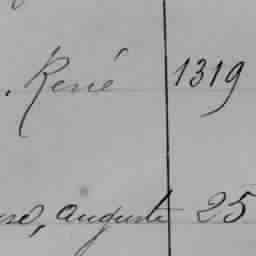 . René 1319
, Auguste 25